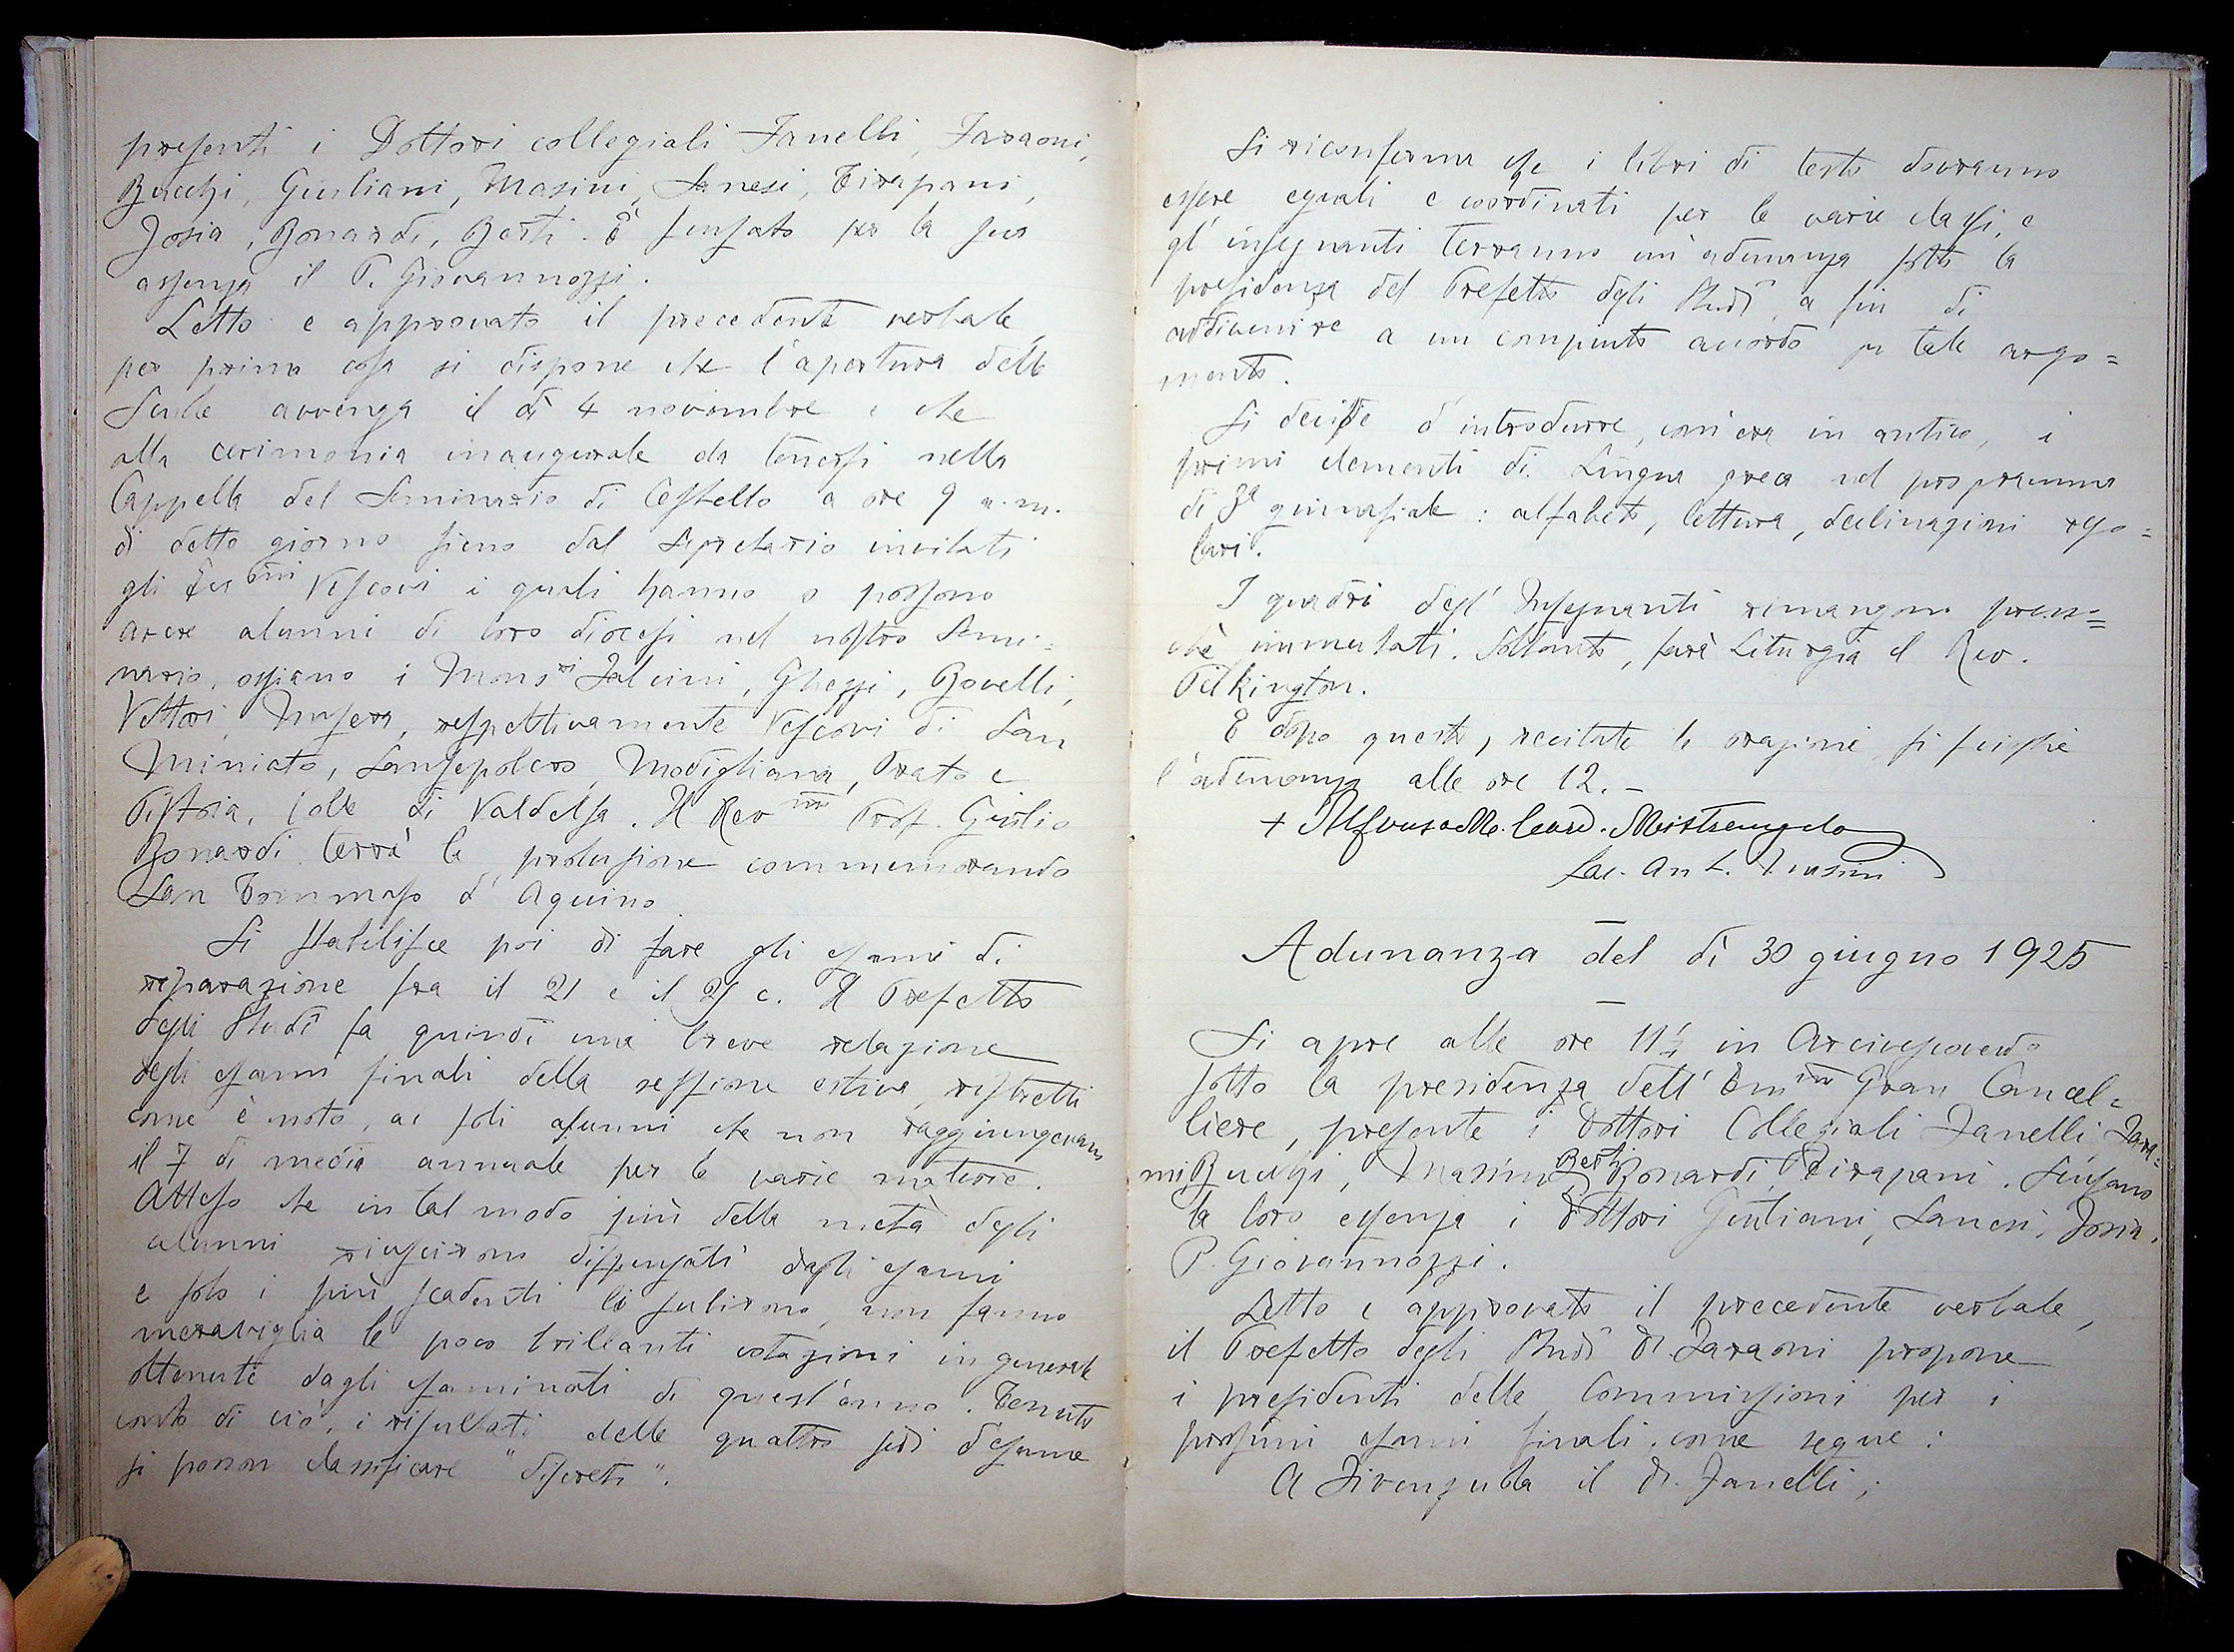 presenti i Dottori collegiali Fanelli, Faraoni,
Bucchi, Giuliani, Masini, Sanesi, Tirapani,
Josia, Bonardi, Berti. È scusato per la sua
assenza il P. Giovannozzi.
Letto e approvato il precedente verbale,
per prima cosa si dispone che l'apertura delle
Scuole avvenga il dì 4 novembre e che
alla cerimonia inaugurale da tenersi nella
Cappella del Seminario di Cestello a ore 9 a.m.
di detto giorno sieno dal Segretario invitati
gli Ecc.mi Vescovi i quali hanno o possono
avere alunni di loro diocesi nel nostro Semi=
nario, ossiano i Monsri Falcini, Ghezzi, Bovelli,
Vettori, Masera, respettivamente Vescovi di San
Miniato, Sansepolcro, Modigliana, Prato e
Pistoia, Colle di Valdelsa. Il Revmo Prof. Giulio
Bonardi terrà la prolusione commemorando
San Tommaso d'Aquino.
Si stabilisce poi di fare gli esami di
riparazione fra il 21 e il c. Il Prefetto
degli Studî fa quindi una breve relazione
degli esami finali della sessione estiva, ristretti
come è noto, ai soli alunni che non raggiungevano
il 7 di media annuale per le varie materie.
Atteso che in tal modo più della metà degli
alunni riuscirono dispensati dagli esami
e solo i più scadenti li subirono, non fanno
meraviglia le poco brillanti votazioni in generale
ottenute dagli esaminati di quest'anno. Tenuto
conto di ciò, i risultati delle quattro sedi d'esame
si posson classificare "discreti".
Si riconferma che i libri di testo dovranno
essere eguali e coordinati per le varie classi, e
gl'insegnanti terranno un'adunanza sotto la
presidenza del Prefetto degli Studî, a fin di
addivenire a un compiuto accordo su tale argo=
mento.
Si decide d'introdurre, com'era in antico, i
primi elementi di Lingua greca nel programma
di 3a ginnasiale: alfabeto, lettura, declinazioni rego=
lari.
I quadri degl'Insegnanti rimangono presso=
chè immutati. Soltanto, farà Liturgia il Rev.
Pilkington.
E dopo questo, recitate le orazioni si scioglie
l'adunanza alle ore 12. –
+ Alfonso M. Card. Mistrangelo
Sac. Ant.
Adunanza del dì 30 giugno 1925
Si apre alle ore 11½ in Arcivescovado
sotto la presidenza dell'Emmo Gran Cancel=
liere, presente i Dottori Collegiali Fanelli Fara=
oni Bucchi, Masini, Berti Bonardi, Tirapani. Scusano
la loro assenza i dottori Giuliani, Sanesi, Josia,
P. Giovannozzi.
Letto e approvato il precedente verbale,
il Prefetto degli Studî Dr. Faraoni propone
i presidenti delle Commissioni per i
prossimi esami finali, come segue:
A Firenzuola il Dr. Fanelli;